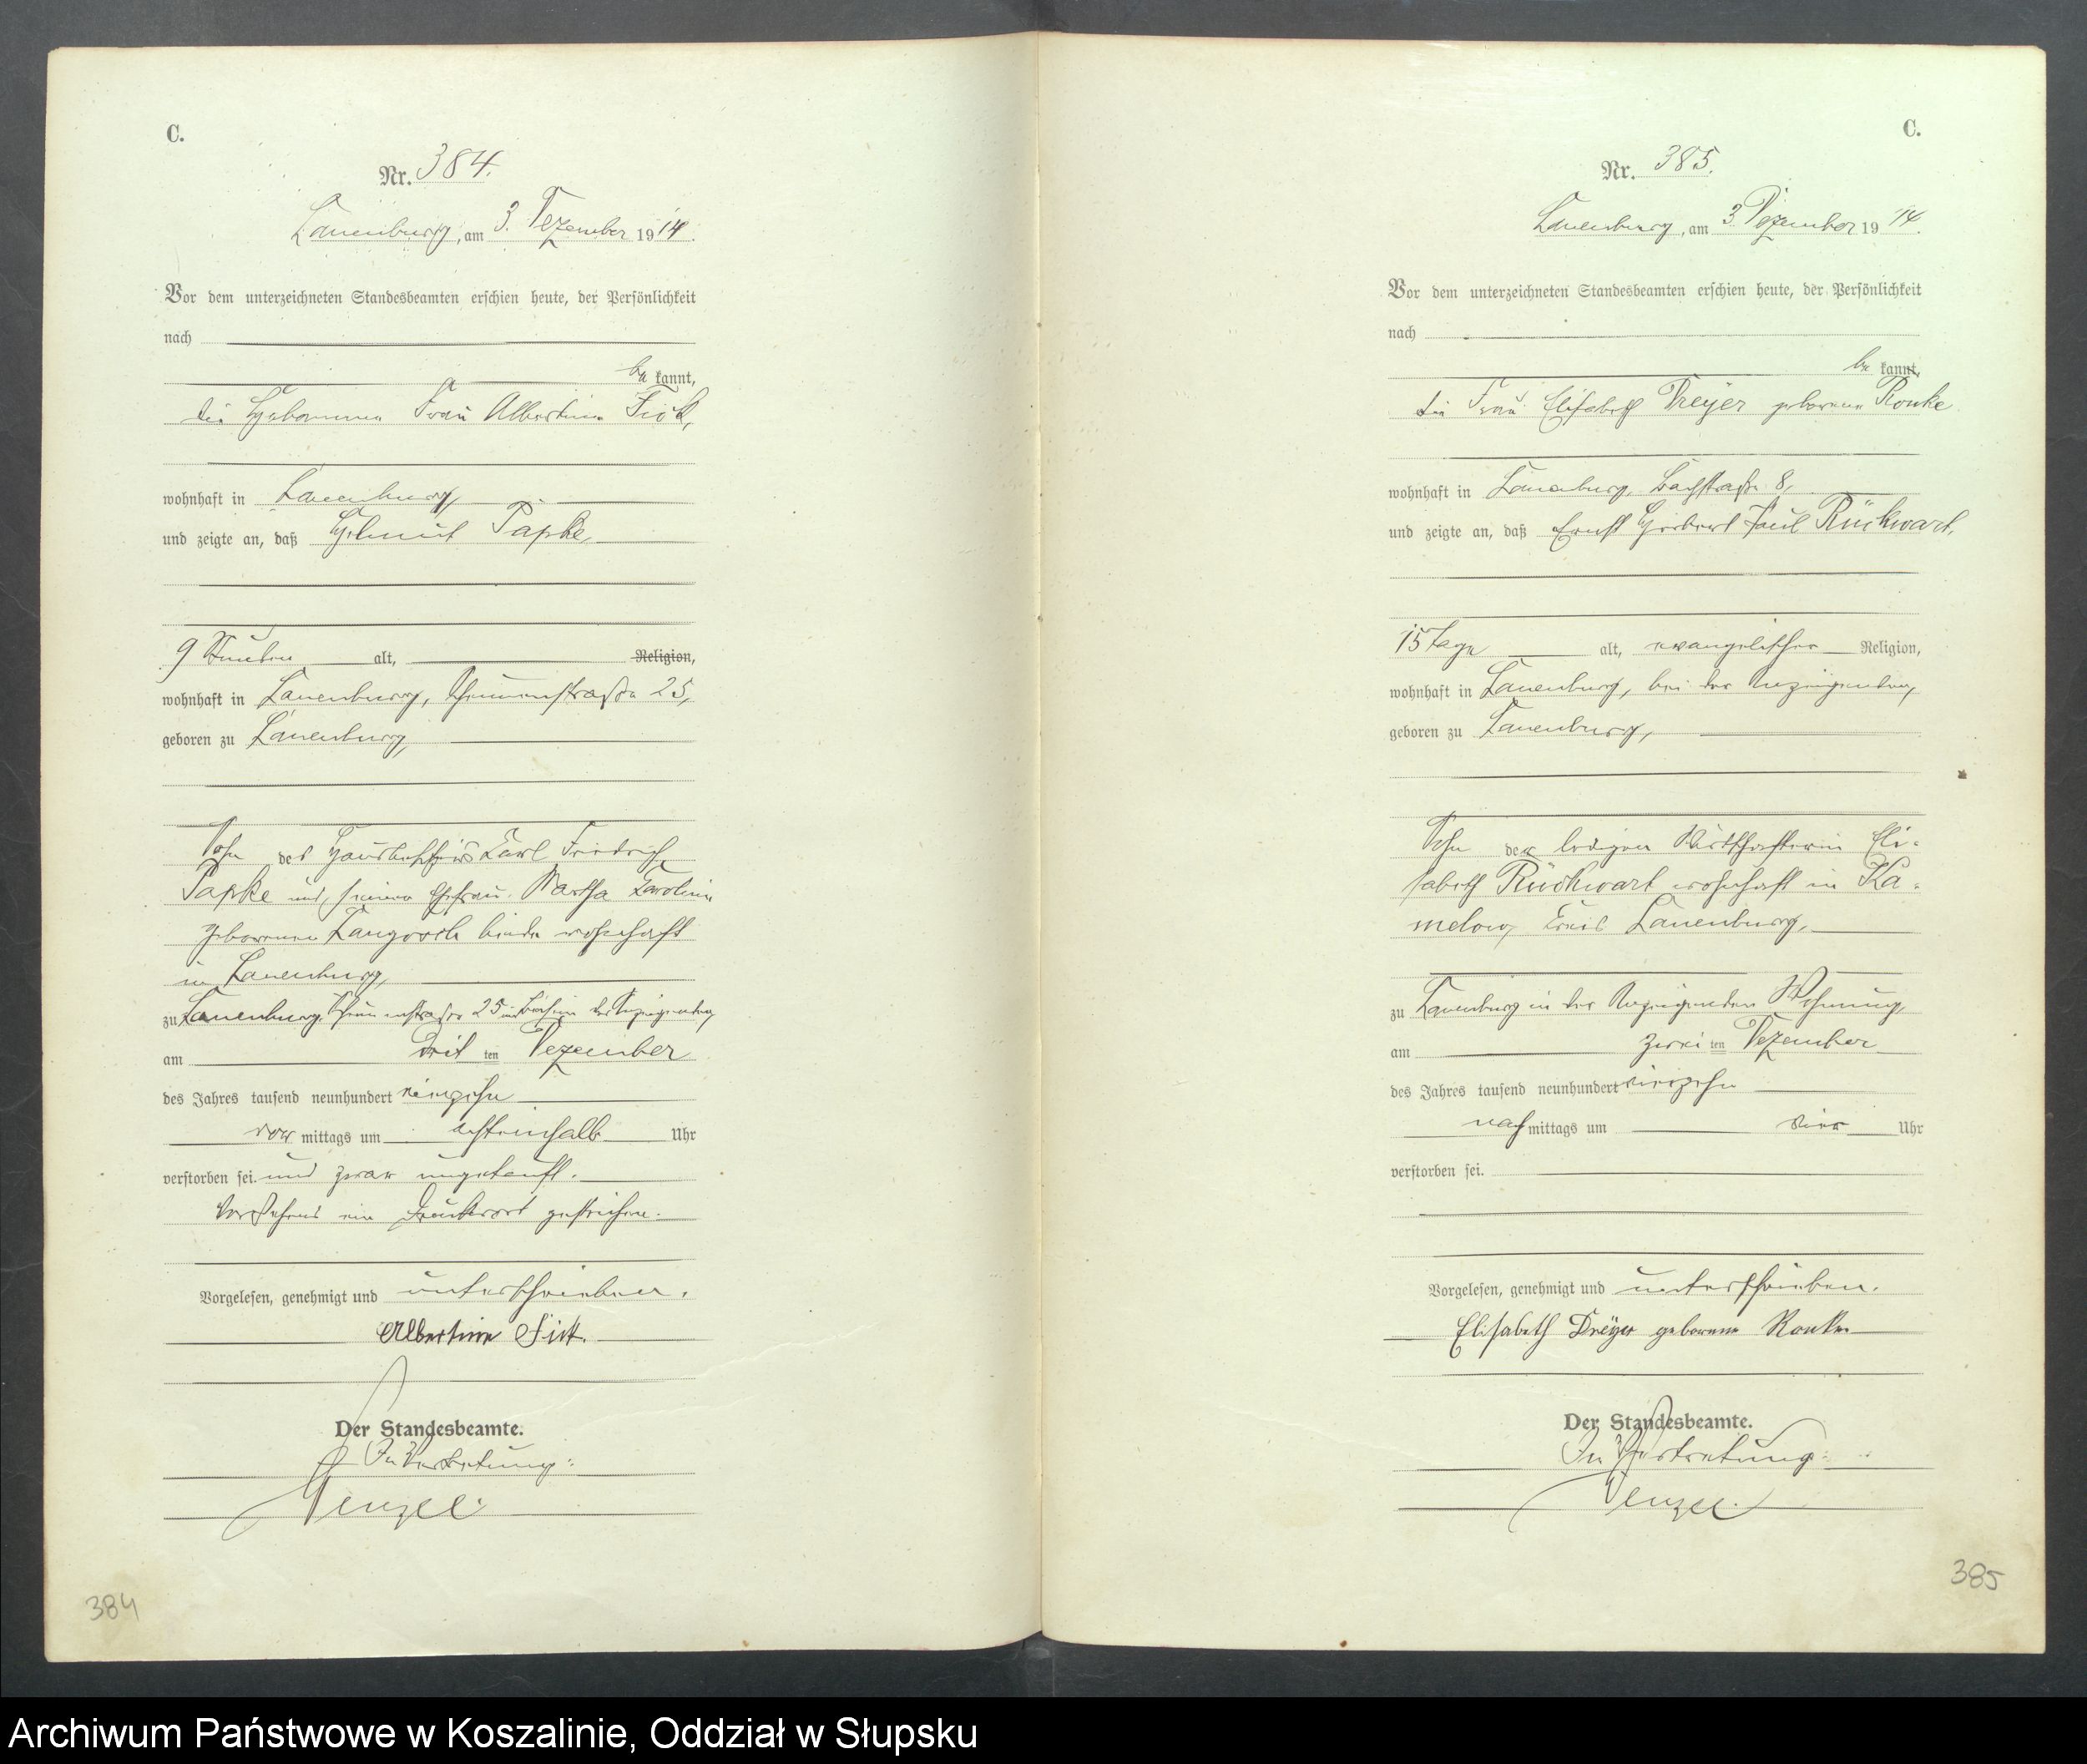 C.
Nr. 384.
Lauenburg, am 3. Dezember 1914.
Vor dem unterzeichneten Standesbeamten erschien heute, der Persönlichkeit
nach
be kannt,
die Hebamme Frau Albertine Fick,
wohnhaft in Lauenburg,
und zeigte an, daß Helmut Papke,
9 Stunden alt, Religion,
wohnhaft in Lauenburg, Scheunenstraße 25,
geboren zu Lauenburg,
Sohn des Hausbesitzers Karl Friedrich
Papke und seiner Ehefrau Martha Karoline
geborenen beide wohnhaft
in Lauenburg,
zu Lauenburg, Scheunenstraße 25 im Beisein der Anzeigenden,
am drit ten Dezember
des Jahres tausend neunhundert vierzehn
vor mittags um achteinhalb Uhr
verstorben sei. und zwar ungetauft.
Vorstehend ein Druckwort gestrichen.
Vorgelesen, genehmigt und unterschrieben.
Albertine Fick.
Der Standesbeamte.
In Vertretung:
Wenzel.
384
C.
Nr. 385.
Lauenburg, am 3. Dezember 1914.
Vor dem unterzeichneten Standesbeamten erschien heute, der Persönlichkeit
nach
be kannt,
die Frau Elisabeth Dreyer geborene Ronke
wohnhaft in Lauenburg, Bachstraße 8,
und zeigte an, daß Ernst Herbert Paul Rückwart,
15 Tage alt, evangelischer Religion,
wohnhaft in Lauenburg, bei der Anzeigenden,
geboren zu Lauenburg,
Sohn der ledigen Wirtschafterin Eli-
sabeth Rückwart wohnhaft in Ka-
melow, Kreis Lauenburg,
zu Lauenburg in der Anzeigenden Wohnung,
am zwei ten Dezember
des Jahres tausend neunhundert vierzehn
nach mittags um vier Uhr
verstorben sei.
Vorgelesen, genehmigt und unterschrieben.
Elisabeth Dreyer geborene Ronke
Der Standesbeamte.
In Vertretung:
Wenzel.
385
Archiwum Państwowe w Koszalinie, Oddział w Słupsku